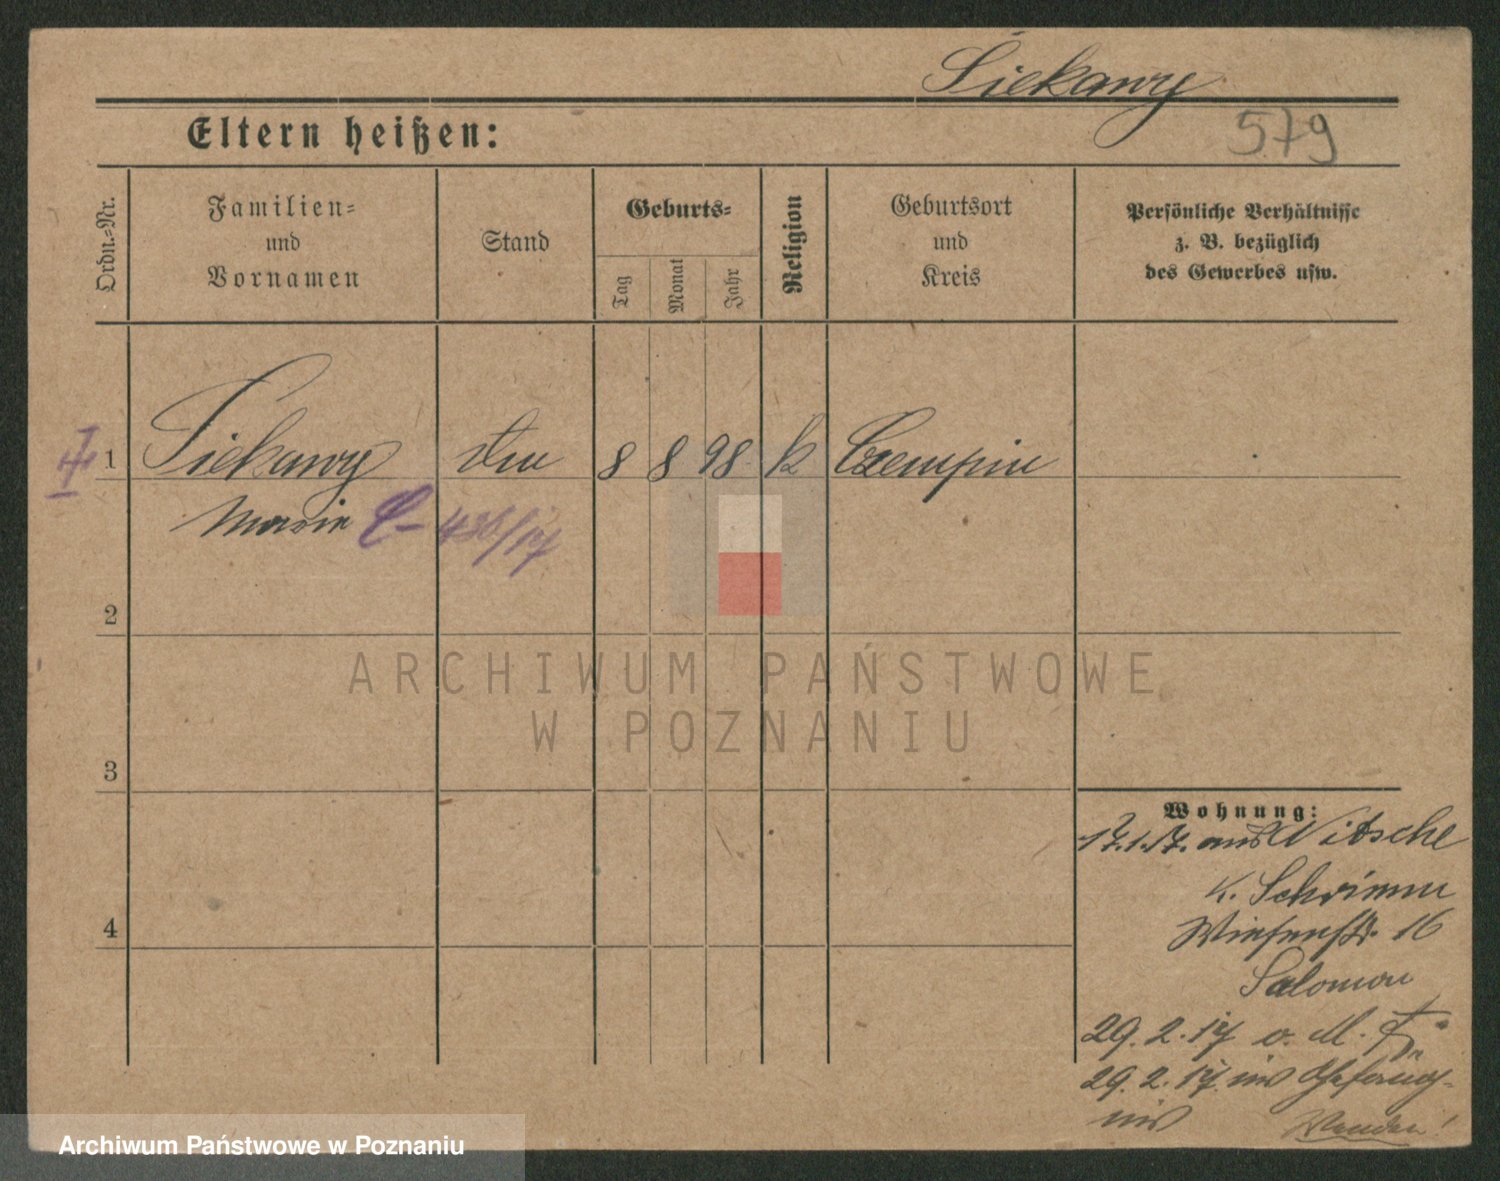 Siekawy
Eltern heißen:
579
Ordn.-Nr.
Familien-
und
Vornamen
Stand
Geburts-
Tag
Monat
Jahr
Religion
Geburtsort
und
Kreis
Persönliche Verhältnisse
z. B. bezüglich
des Gewerbes usw.
1 Siekawy 8 8 98 k Czempin
Marie 436/17
2
3
4
Wohnung:
17.1.17. aus Nitsche
K. Schrimm
Wiesenstr. 16
Salomon
29.2.17 v. M.
29.2.17. ins Gefäng-
nis Wenden!
ARCHIWUM PAŃSTWOWE
W POZNANIU
Archiwum Państwowe w Poznaniu